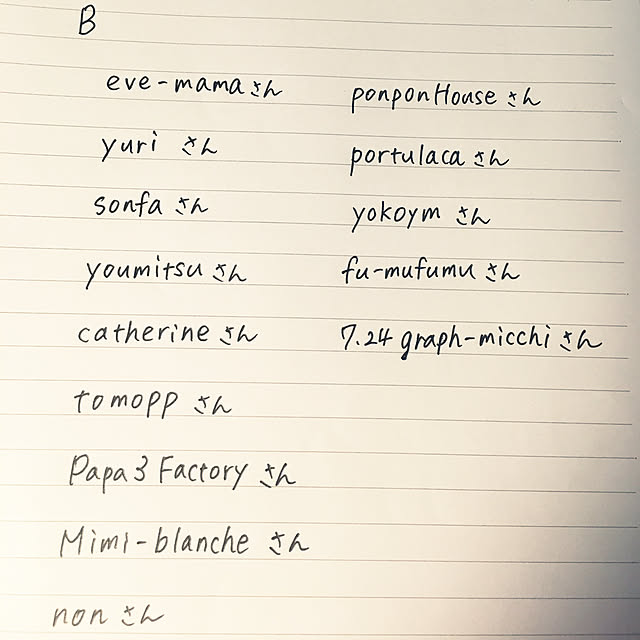 B
eve-mamaさん
yuri さん
sonfa さん
youmitsu さん
catherine さん
tomopp さん
Papa3 Factory さん
Mimi-blanche さん
non さん
ponponHouse さん
portulaca さん
yokoym さん
fu-mufumu さん
7.24 graph-micchi さん